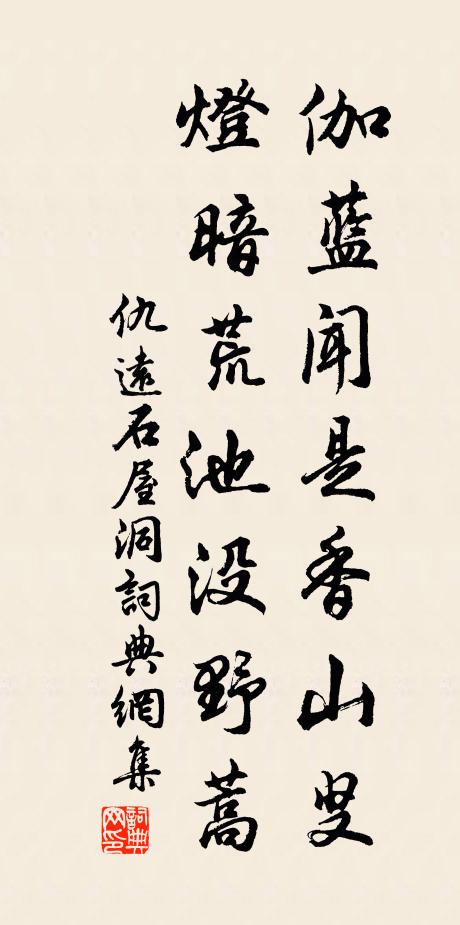 伽藍聞是香山叟
燈暗荒池没野蒿
仇遠石屋洞詞典網集
詞典網印